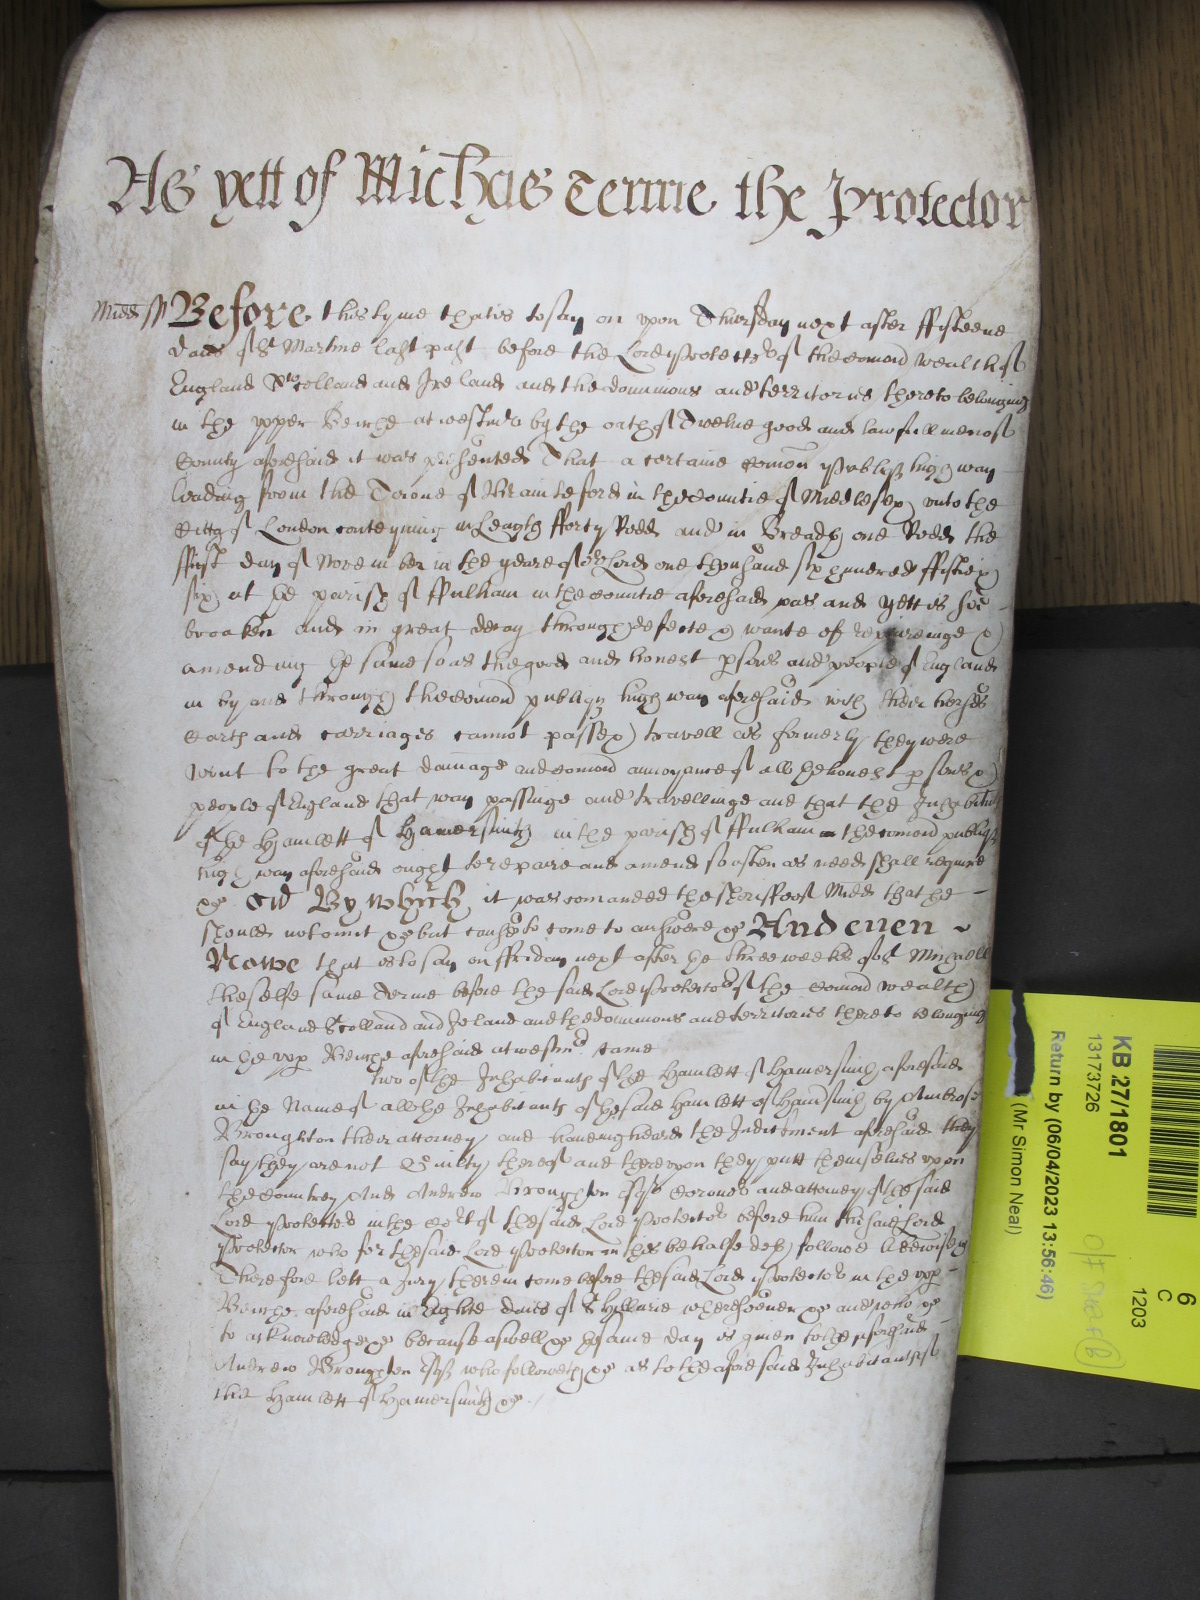 As yett of Michas Terme the Protector
Midd ss Before this tyme that is to say on upon Thursday next after ffifteene
daies of St Martine last past before the Lord Protector of the comond wealth of
England Scotland and Ireland and the dominions and territories thereto belonging
in the upper Benche at westmr by the oath of Twelve good and lawfull men of
County aforesaid it was presented That a certaine comon publiq high way
leading from the Towne of Brainteford in the countie of Middlesex unto the
Citty of London conteyning in Length fforty Rodds and in Breadth one Rodd the
ffirst day of November in the yeare of or Lord one thousand six hundred ffiftie
six at the parish of ffulham in the countie aforesaid was and yett is soe
broaken and in great decay through defecte & wante of repaireinge &
amending the same so as the good and honest psons and people of England
in by and through the comond publiq high way aforesaid with their horses
Carts and carriages cannot passe & travell as formerly they were
wont to the great damage and comond annoyance of all the honest psons &
people of England that way passinge and travellinge and that the Inhabitants
of the Hamlett of Hamersmith in the parish of ffulham the comond publiq
high way aforesaid ought to repaire and amend so often as need shall require
&c By which it was comanded the sheriffe of Midd that he
should not omit &c but cause to come to answere &c And even
Nowe that is to say on ffriday next after the three weekes of St Michaell
the selfe same Terme before the said Lord Protector of the comond wealth
of England Scotland and Ireland and the dominions and territories thereto belonging
in the upp Benche aforesaid at westmr came
two of the Inhabitants of the Hamlett of Hamersmith aforesaid
in the Name of all the Inhabitants of the said Hamlett of Hamersmith by Ambrose
Broughton their attorney and haveing heard the Indictment aforesaid they
say they are not Guilty thereof and thereupon they putt themselves upon
the countrey And Andrew Broughton Esqr Coroner and attorney of the said
Lord Protector in the Cort of the said Lord Protector before him the said Lord
Protector who for the said Lord Protector in this behalfe doth followe likewise
Therefore lett a Jury therein come before the said Lord Protector in the upp
Benche aforesaid in Eighte daies of St Hillarie wheresoever &c and who &c
to acknowledge &c because aswell &c the same day is given to the aforesaid
Andrew Broughton Esqr who followeth &c as to the aforesaid Inhabitants of
the Hamlett of Hamersmith &c
KB 27/1801
13173726
Return by (06/04/2023 13:56:46)
(Mr Simon Neal)
6
C
1203